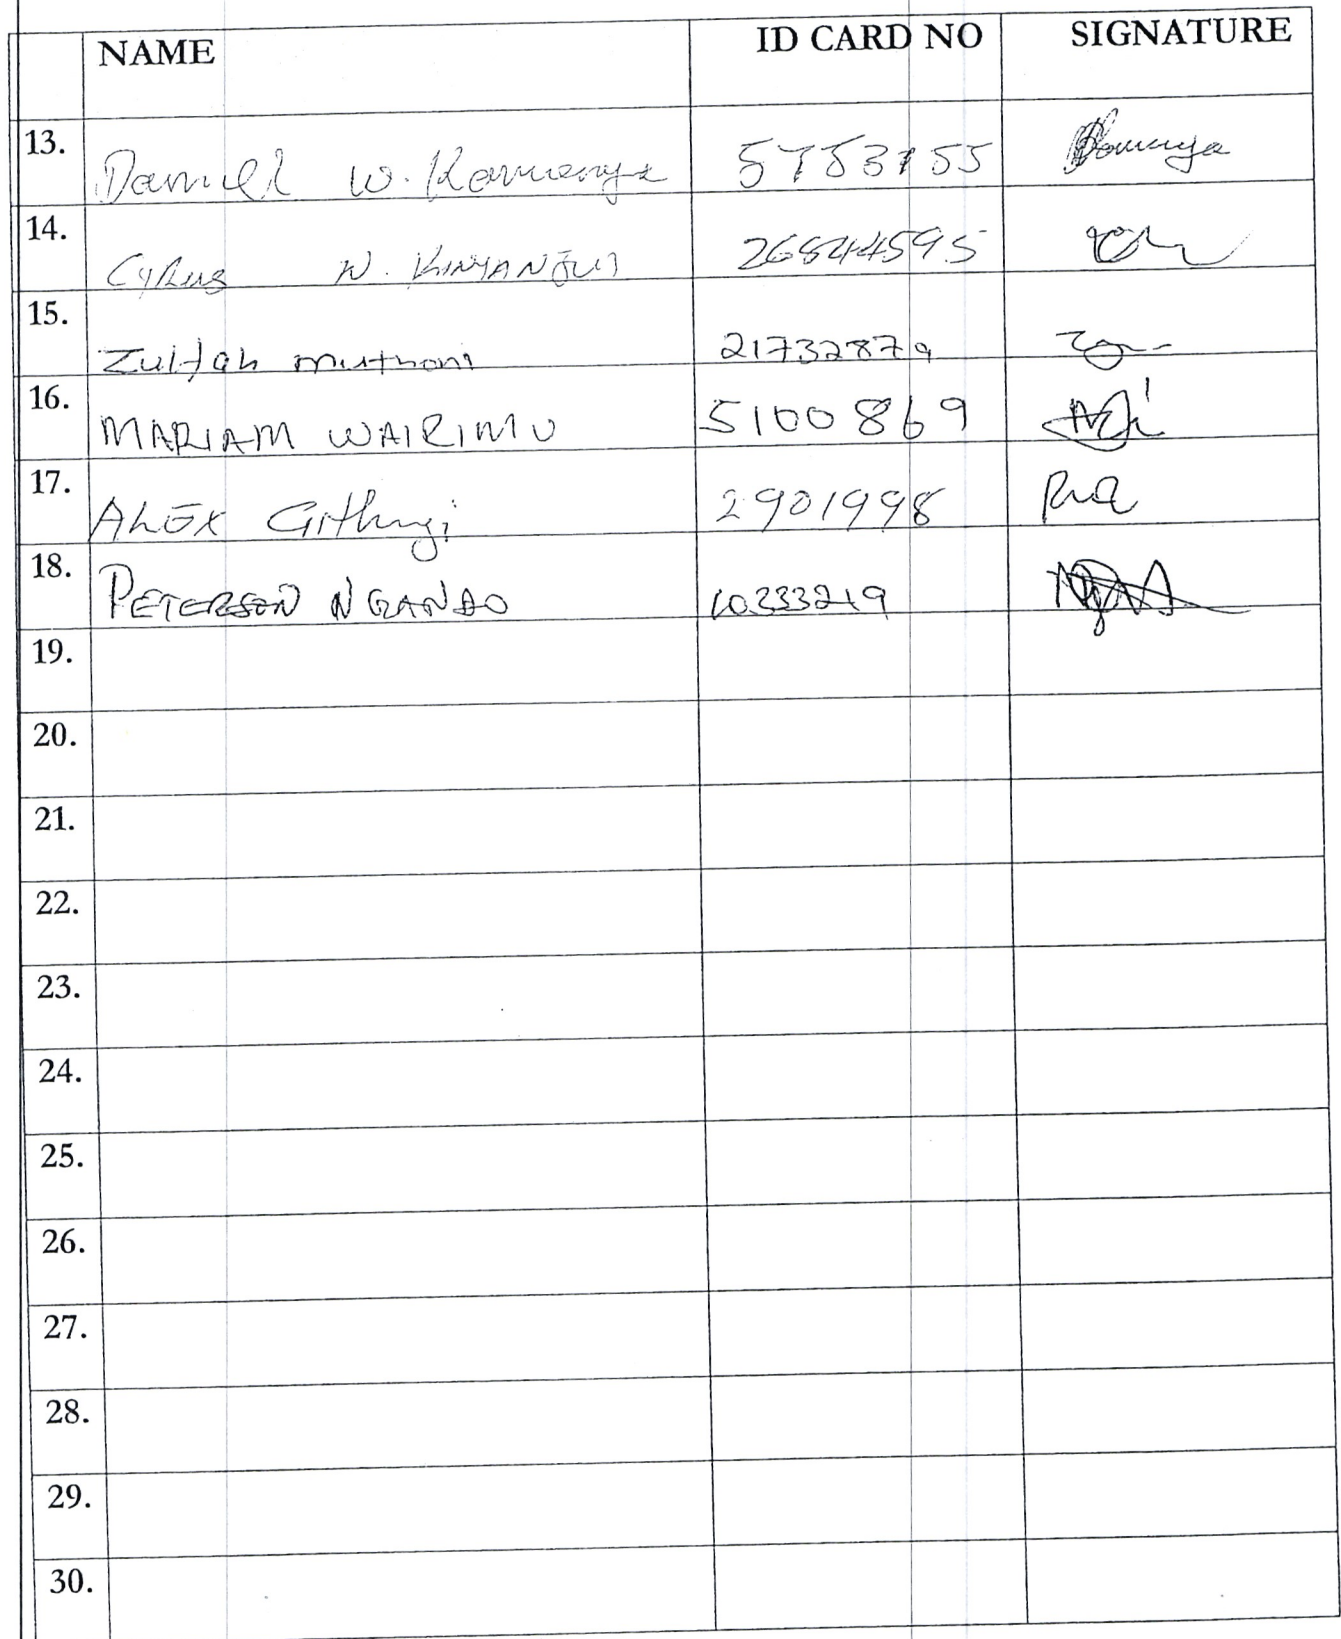 NAME ID CARD NO SIGNATURE
13. Daniel W. Kamenya 5753155
14. Cyrus N. KINYANJUI 26844595
15. Zulfah muthoni 21732879
16. MARIAM WAIRIMU 5100869
17. ALEX Githugi 2901998
18. PETERSON NGANDO 10333219
19.
20.
21.
22.
23.
24.
25.
26.
27.
28.
29.
30.